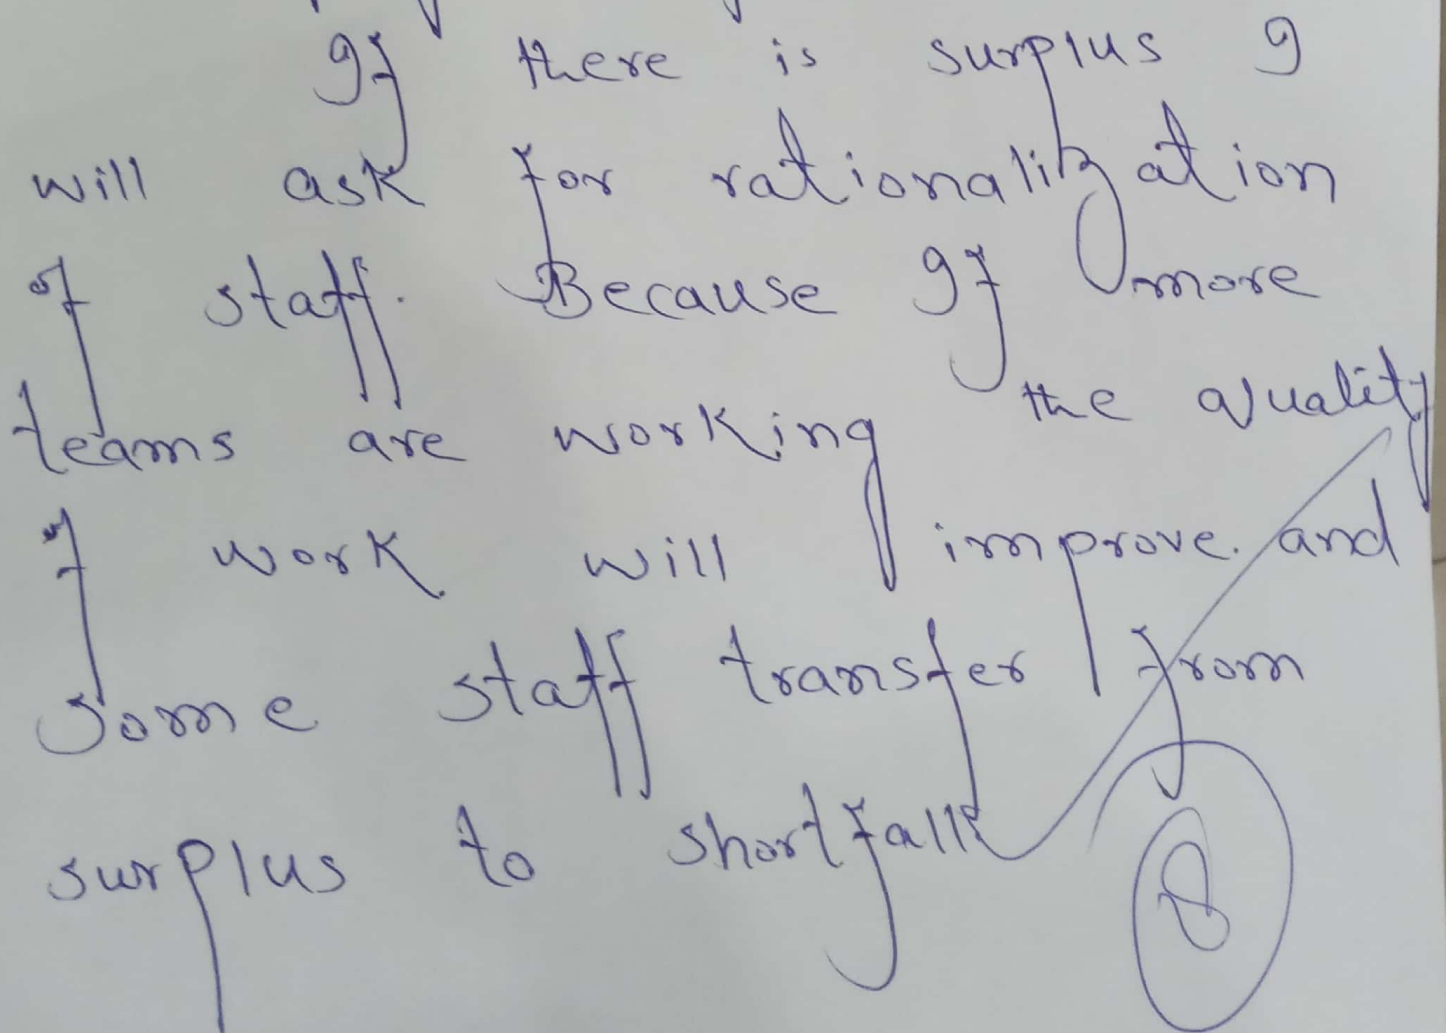 If there is surplus I
will ask for rationalization
of staff. Because If more
teams are working the quality
of work will improve. and
some staff transfer from
surplus to shortfall
8